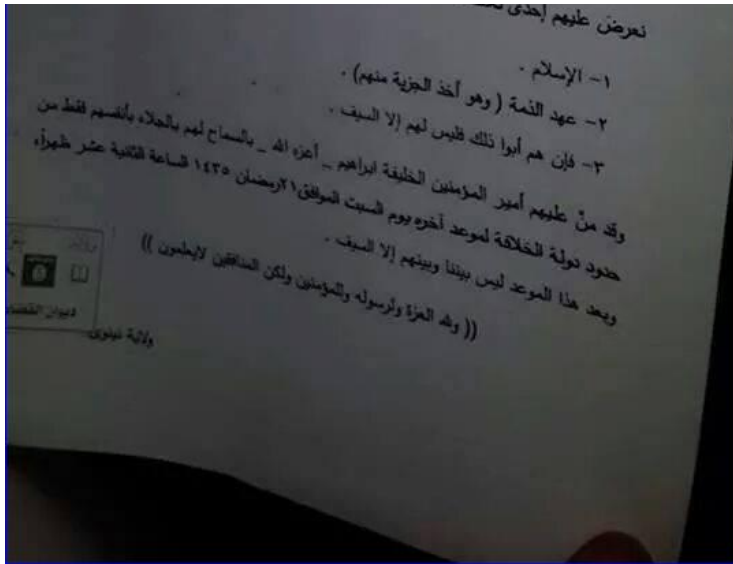 نعرض عليهم إحدى
١- الإسلام .
٢- عهد الذمة ( وهو أخذ الجزية منهم) .
٣- فإن هم أبوا ذلك فليس لهم إلا السيف .
وقد منّ عليهم أمير المؤمنين الخليفة ابراهيم _ أعزه الله _ بالسماح لهم بالجلاء بأنفسهم فقط من
حدود دولة الخلافة لموعد آخره يوم السبت الموافق ٢١رمضان ١٤٣٥ الساعة الثانية عشر ظهراً،
وبعد هذا الموعد ليس بيننا وبينهم إلا السيف .
(( ولله العزة ولرسوله وللمؤمنين ولكن المنافقين لايعلمون ))
ديوان القضاء
ولاية نينوى